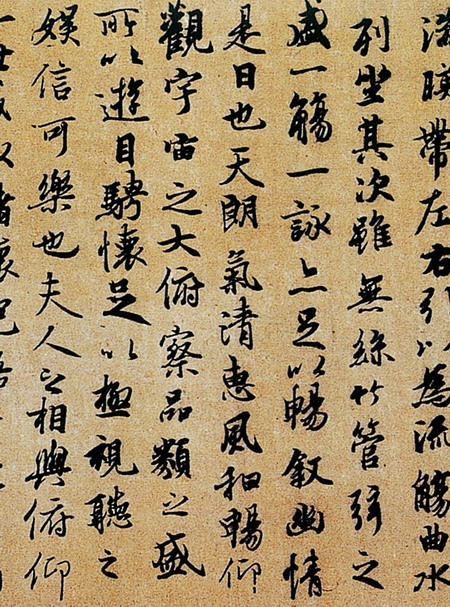 湍暎帶左右引以為流觴曲水
列坐其次雖無絲竹管弦之
盛一觴一詠亦足以暢敘幽情
是日也天朗氣清惠風和暢仰
觀宇宙之大俯察品類之盛
所以遊目騁懷足以極視聽之
娛信可樂也夫人之相與俯仰
一世或取諸懷抱悟